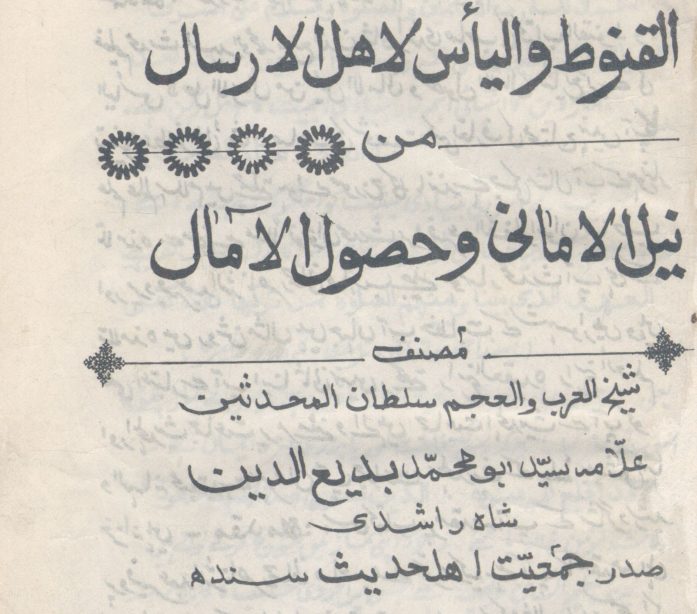 القنوط والیأس لاهل الارسال
من
نیل الامانی وحصول الآمال
مُصنف
شیخ العرب والعجم سلطان المحدثین
علّامہ سیّد ابو محمّد بدیع الدین
شاہ راشدی
صدر جمعیّت اھلحدیث سندھ